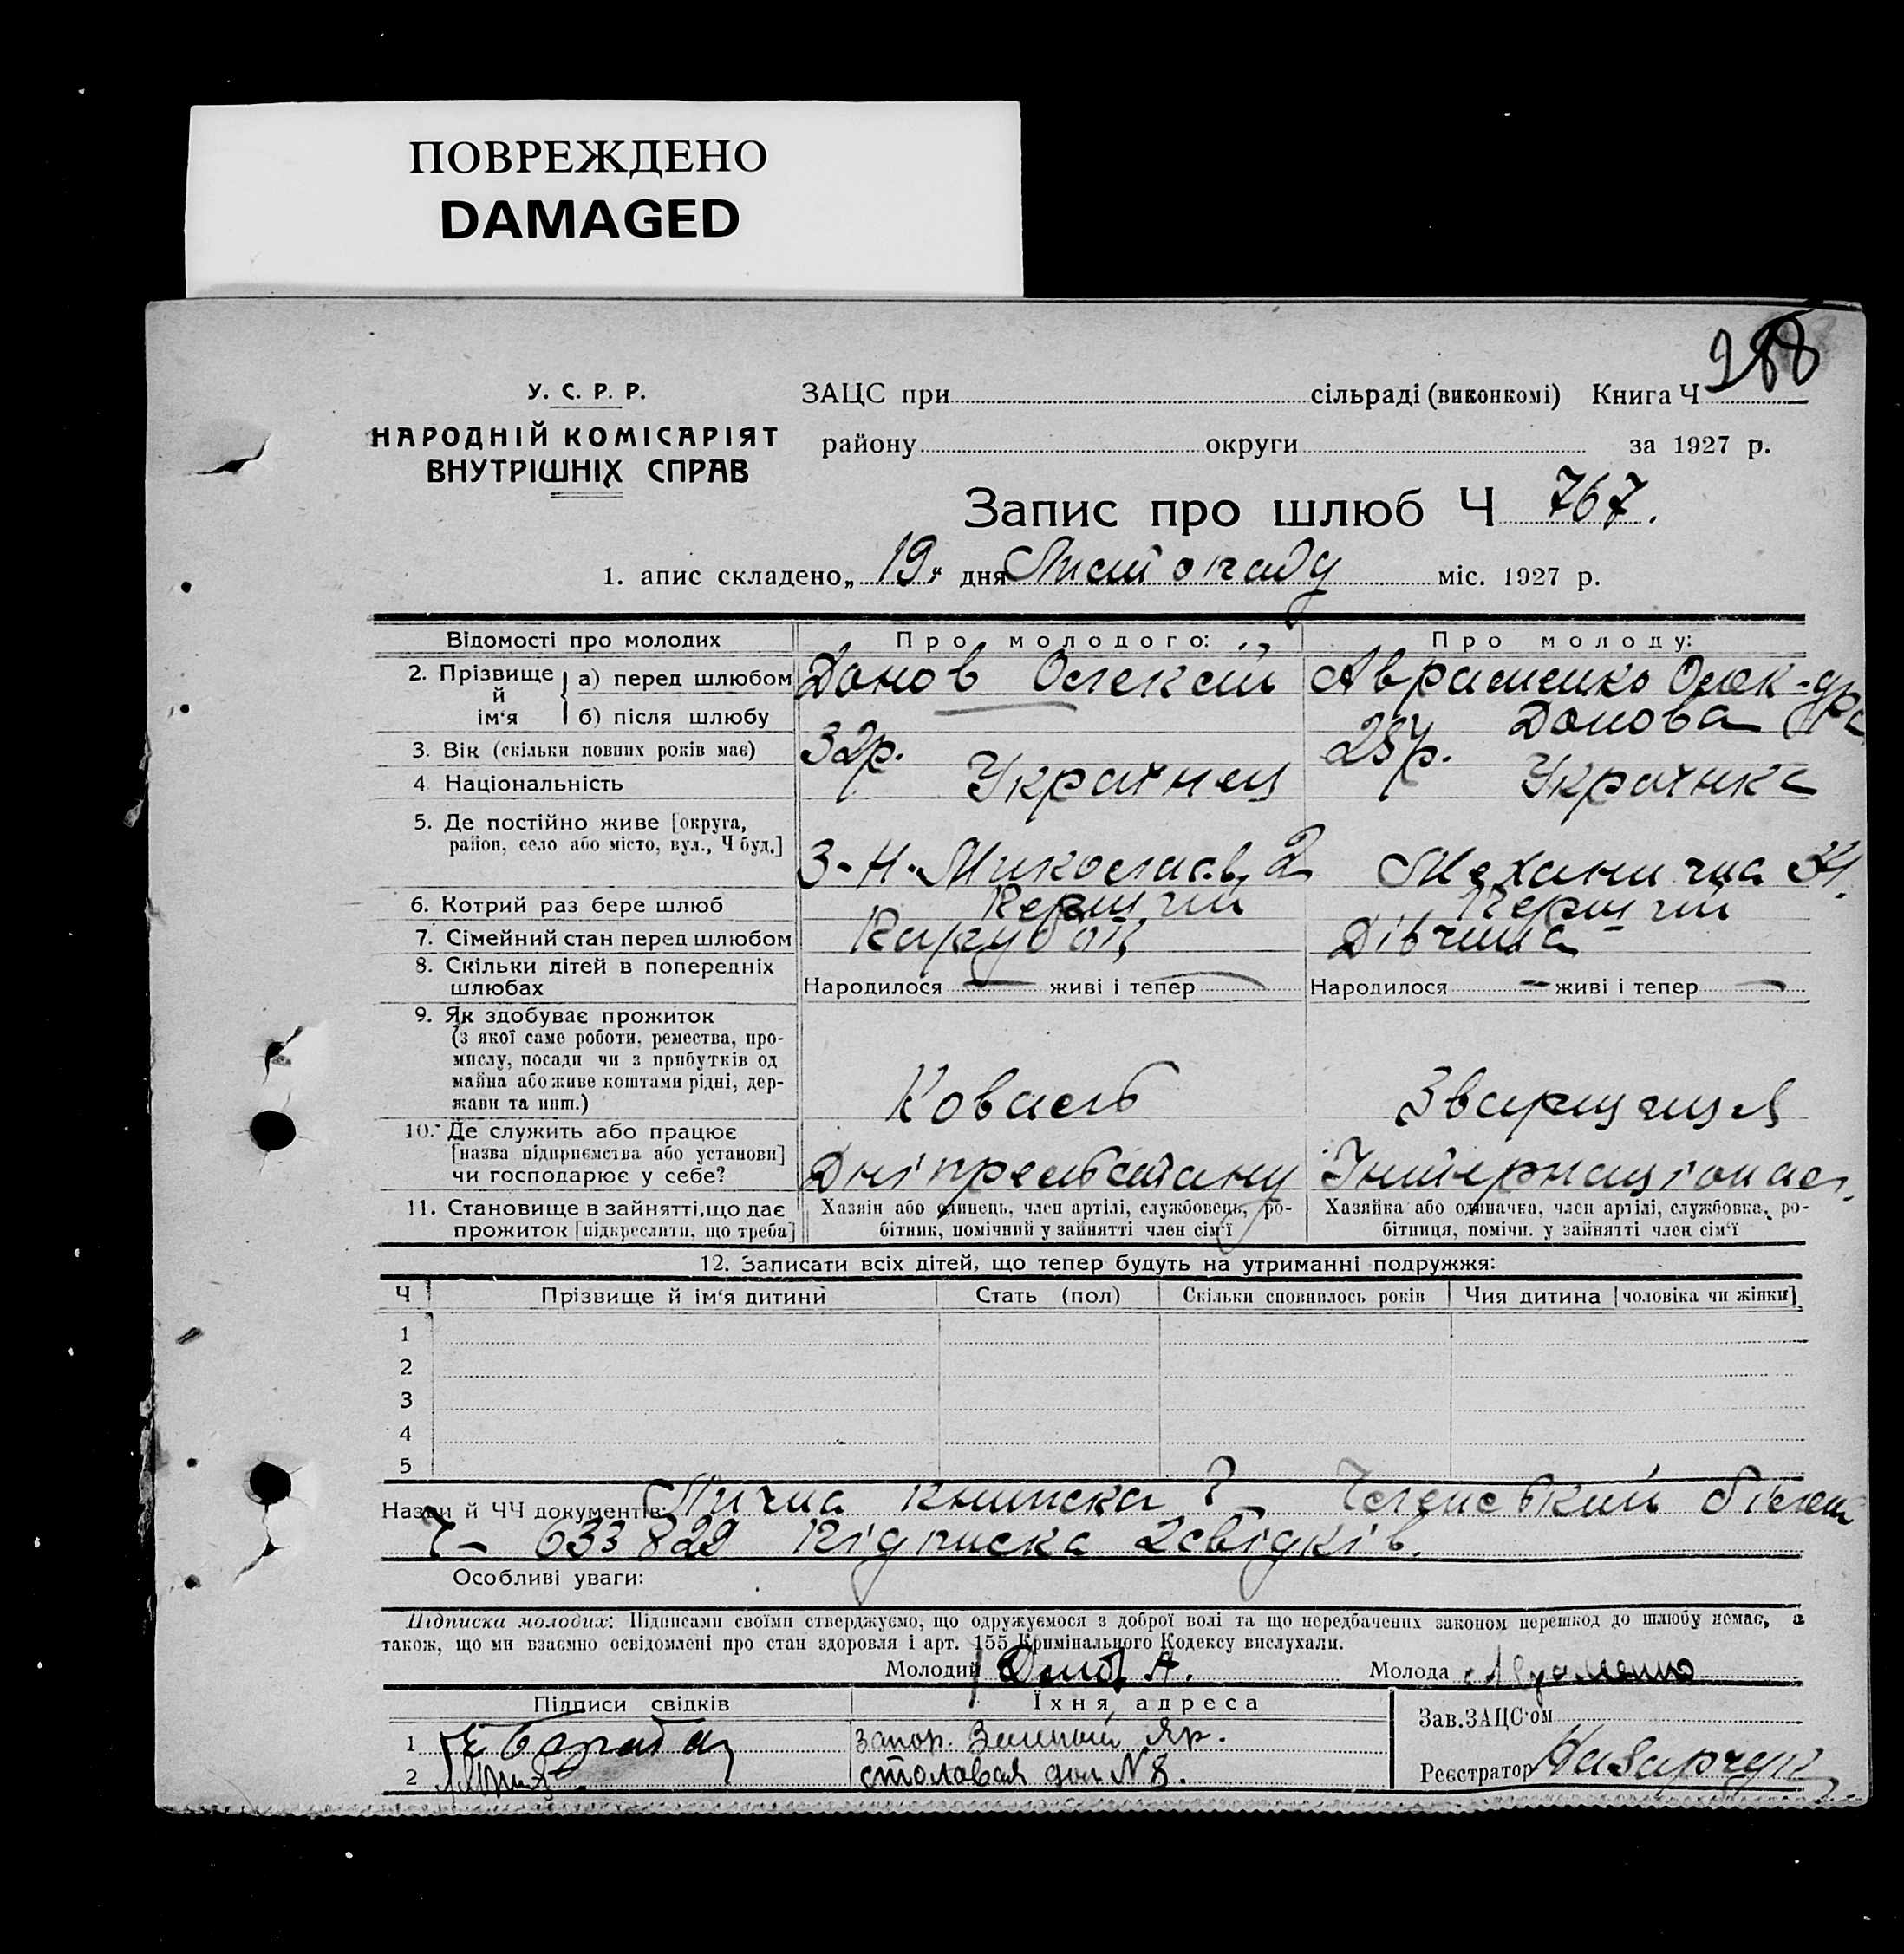 ПОВРЕЖДЕНО
DAMAGED
288
У. С. Р. Р.
НАРОДНІЙ КОМІСАРІЯТ
ВНУТРІШНІХ СПРАВ
ЗАЦС при сільраді (виконкомі) Книга Ч
району округи за 1927 р.
Запис про шлюб Ч 767.
1. апис складено „19“ дня Листопаду міс. 1927 р.
Відомості про молодих Про молодого: Про молоду:
2. Прізвище й ім‘я а) перед шлюбом Донов Олексій Авраменко Олек-дра
б) після шлюбу Донова
3. Вік (скільки повних років має) 32р. 25р.
4 Національність Украинец Украинка
5. Де постійно живе [округа,
район, село або місто, вул., Ч буд.] З-Н-Миколаів. 2 Механична 34.
6. Котрий раз бере шлюб Перший Перший
7. Сімейний стан перед шлюбом Парубок Дівчина
8. Скільки дітей в попередніх
шлюбах Народилося — живі і тепер — Народилося — живі і тепер —
9. Як здобуває прожиток
(з якої саме роботи, ремества, про-
мислу, посади чи з прибутків од
майна або живе коштами рідні, дер-
жави та инш.) Коваль Зварщиця
10. Де служить або працює
[назва підприємства або установи]
чи господарює у себе? Дніпрельстану Інтернаціонал.
11. Становище в зайнятті, що дає
прожиток [підкреслити, що треба]
Хазяін або одинець, член артілі, службовець, ро-
бітник, помічний у зайнятті член сім‘ї
Хазяйка або одиначка, член артілі, службовка, ро-
бітниця, помічн. у зайнятті член сім‘ї
12. Записати всіх дітей, що тепер будуть на утриманні подружжя:
Ч Прізвище й ім‘я дитини Стать (пол) Скільки сповнилось років Чия дитина [чоловіка чи жінки]
1
2
3
4
5
Назви й ЧЧ документів: Лична книжка Членський білет
Ч– 633829 Підписка 2 свідків.
Особливі уваги:
Підписка молодих: Підписами своїми стверджуємо, що одружуємося з доброї волі та що передбачених законом перешкод до шлюбу немає, а
також, що ми взаємно освідомлені про стан здоровля і арт. 155 Кримінального Кодексу вислухали.
Молодий Донов А. Молода Авраменко
Підписи свідків Їхня адреса
1 Запор. Зеленый Яр.
2 столовая дом N 8.
Зав.ЗАЦС‘ом
Реєстратор Назарчук